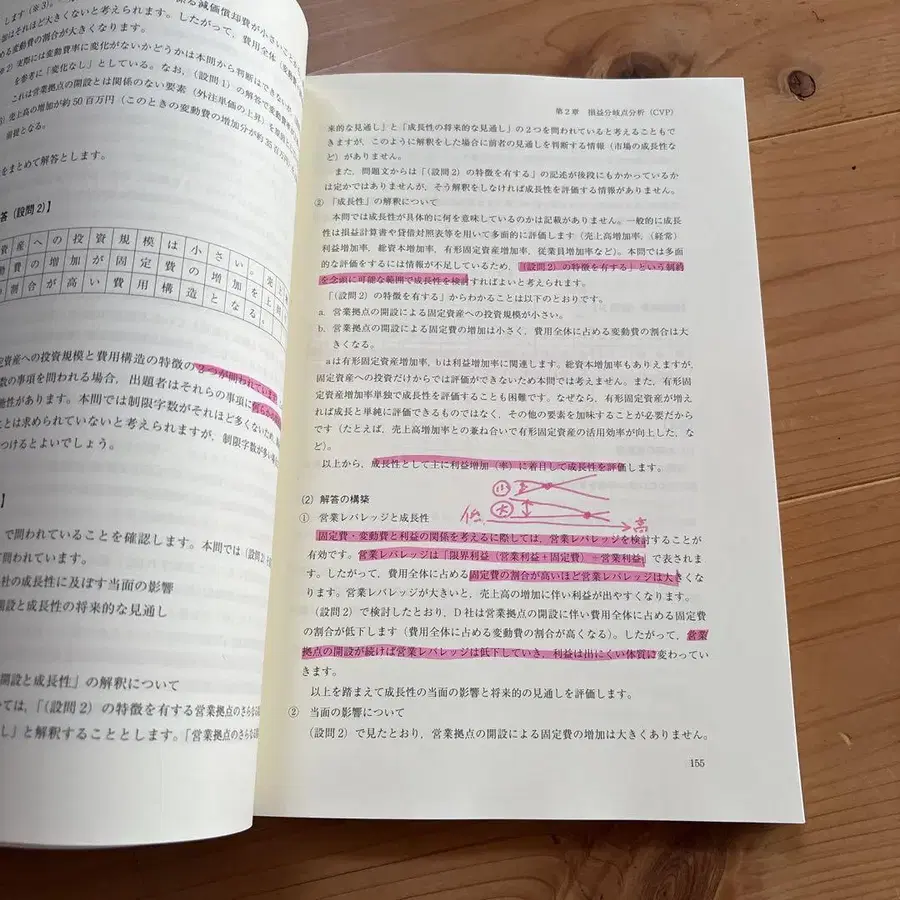 します（※3）。
はそれほど大きくないと考えられます。したがって、費用全体
める変動費の割合が大きくなります。
2）実際には変動費率に変化がないかどうかは本問から判断はできない
を参考に「変化なし」としている。なお、（設問1）の解答で変動費
これは営業拠点の開設とは関係のない要素（外注単価の上昇）を
3）売上高の増加が約50百万円（このときの変動費の増加分が約35百万円
前提となる。
をまとめて解答とします。
答（設問2）】
資産への投資規模は小さい。
動費の増加が固定費の増加を上
割合が高い費用構造となる。
定資産への投資規模と費用構造の特徴の2つが問われています
数の事項を問われる場合、出題者はそれらの事項に何らかの
能性があります。本問では制限字数がそれほど多くないため、
ことは求められていないと考えられますが、制限字数が多い
つけるとよいでしょう。
】
で問われていることを確認します。本問では（設問2）
て問われています。
社の成長性に及ぼす当面の影響
開設と成長性の将来的な見通し
開設と成長性」の解釈について
ては、「（設問2）の特徴を有する営業拠点のさらなる
し」と解釈することとします。「営業拠点のさらなる
第2章　損益分岐点分析（CVP）
来的な見通し」と「成長性の将来的な見通し」の2つを問われていると考えることもで
きますが、このように解釈をした場合に前者の見通しを判断する情報（市場の成長性な
ど）がありません。
また、問題文からは「（設問2）の特徴を有する」の記述が後段にもかかっているか
は定かではありませんが、そう解釈をしなければ成長性を評価する情報がありません。
② 「成長性」の解釈について
本問では成長性が具体的に何を意味しているのかは記載がありません。一般的に成長
性は損益計算書や貸借対照表等を用いて多面的に評価します（売上高増加率、（経常）
利益増加率、総資本増加率、有形固定資産増加率、従業員増加率など）。本問では多面
的な評価をするには情報が不足しているため、「（設問2）の特徴を有する」という制約
を念頭に可能な範囲で成長性を検討すればよいと考えられます。
「（設問2）の特徴を有する」からわかることは以下のとおりです。
a. 営業拠点の開設による固定資産への投資規模が小さい。
b. 営業拠点の開設による固定費の増加は小さく、費用全体に占める変動費の割合は大
きくなる。
aは有形固定資産増加率、bは利益増加率に関連します。総資本増加率もありえますが、
固定資産への投資だけからでは評価ができないため本問では考えません。また、有形固
定資産増加率単独で成長性を評価することも困難です。なぜなら、有形固定資産が増え
れば成長と単純に評価できるものではなく、その他の要素を加味することが必要だから
です（たとえば、売上高増加率との兼ね合いで有形固定資産の活用効率が向上した、な
ど）。
以上から、成長性として主に利益増加（率）に着目して成長性を評価します。
小
(2) 解答の構築
大
① 営業レバレッジと成長性
低
高
固定費・変動費と利益の関係を考えるに際しては、営業レバレッジを検討することが
有効です。営業レバレッジは「限界利益（営業利益＋固定費）÷営業利益」で表されま
す。したがって、費用全体に占める固定費の割合が高いほど営業レバレッジは大きくな
ります。営業レバレッジが大きいと、売上高の増加に伴い利益が出やすくなります。
（設問2）で検討したとおり、D社は営業拠点の開設に伴い費用全体に占める固定費
の割合が低下します（費用全体に占める変動費の割合が高くなる）。したがって、営業
拠点の開設が続けば営業レバレッジは低下していき、利益は出にくい体質に変わってい
きます。
以上を踏まえて成長性の当面の影響と将来的の見通しを評価します。
② 当面の影響について
（設問2）で見たとおり、営業拠点の開設による固定費の増加は大きくありません。
155